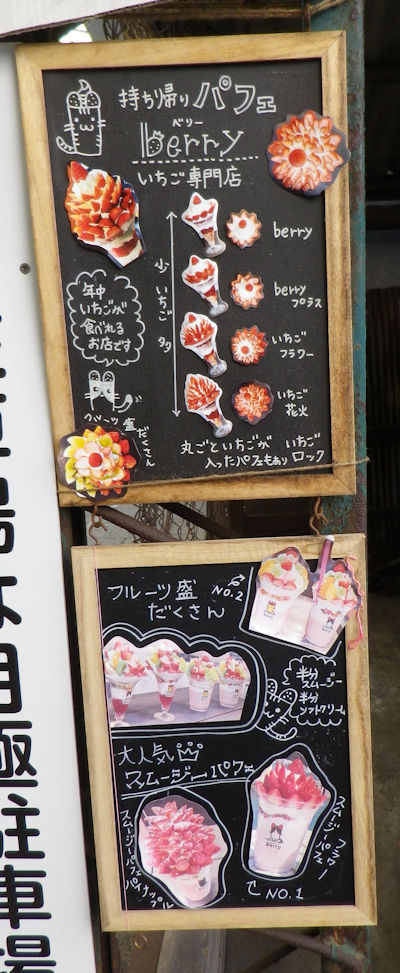 持ち帰り パフェ
ベリー
berry
いちご専門店
少 いちご 多
berry
berry
プラス
いちご
フラワー
いちご
花火
年中
いちごが
食べれる
お店です
フルーツ盛
だくさん
丸ごといちごが いちご
入ったパフェもあり ロック
フルーツ盛
だくさん
No.2
半分
スムージー
半分
ソフトクリーム
大人気
スムージーパフェ
スムージーパフェ
パイナップル
スムージー
パフェ
フラワー
No.1
berry
極駐車場